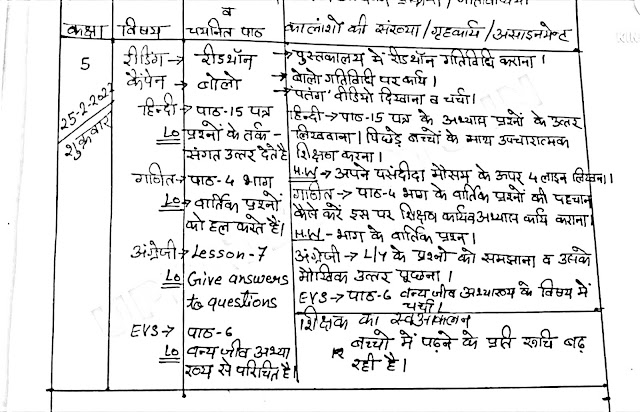 व
कक्षा विषय चयनित पाठ कालांशों की संख्या/गृहकार्य/असाइनमेन्ट
5
25-2-2022
शुक्रवार
रीडिंग → रीडथॉन
कैंपेन → बोलो
हिन्दी → पाठ-15 पत्र
LO प्रश्नों के तर्क-
संगत उत्तर देते है
गणित → पाठ-4 भाग
LO → वार्तिक प्रश्नों
को हल करते हैं।
अंग्रेजी → Lesson-7
LO Give answers
to questions
EVS → पाठ-6
LO वन्य जीव अभ्या
रण्य से परिचित है।
→ पुस्तकालय में रीडथॉन गतिविधि कराना।
→ बोलो गतिविधि पर कार्य।
→ 'पतंग' वीडियो दिखाना व चर्चा।
हिन्दी → पाठ-15 पत्र के अभ्यास प्रश्नों के उत्तर
लिखवाना। पिछड़े बच्चों के साथ उपचारात्मक
शिक्षण करना।
H.W → अपने पसंदीदा मौसम के ऊपर 4 लाइन लिखना।
गणित → पाठ-4 भाग के वार्तिक प्रश्नों की पहचान
कैसे करें इस पर शिक्षण कार्य व अभ्यास कार्य कराना।
H.W - भाग के वार्तिक प्रश्न।
अंग्रेजी → L/7 के प्रश्नों को समझाना व उसके
मौखिक उत्तर पूछना।
EVS → पाठ-6 वन्य जीव अभ्यारण्य के विषय में
चर्चा।
शिक्षक का स्वआकलन
बच्चों में पढ़ने के प्रति रूचि बढ़
रही है।